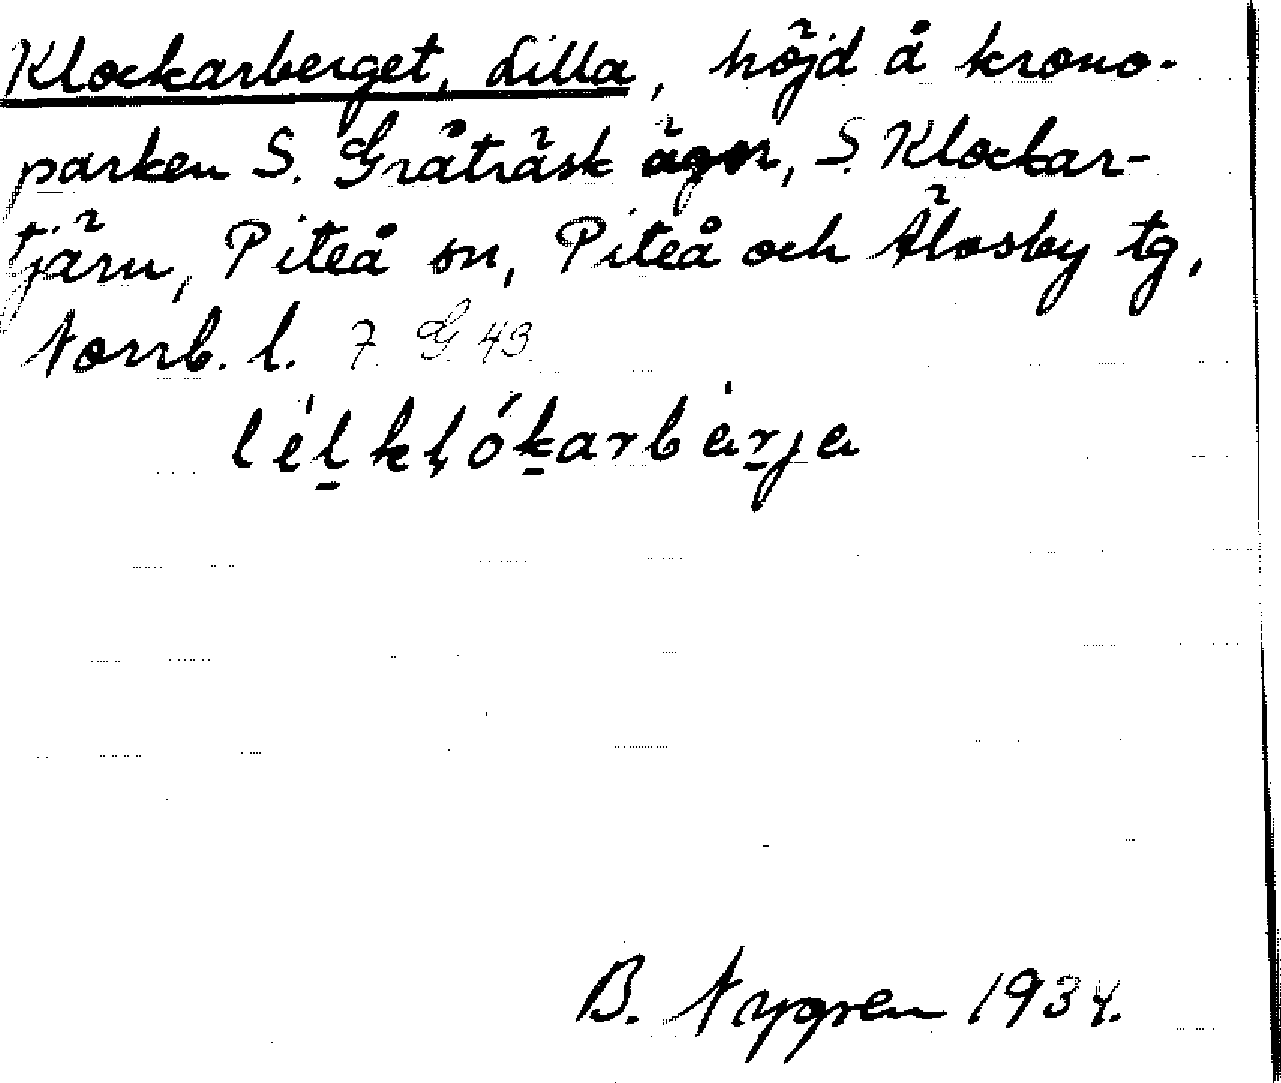 Klockarberget, Lilla, höjd å krono-
parken S. Gråträsk ägor, S. Klockar-
tjärn, Piteå sn, Piteå och Älvsby tg,
Norrb. l. 7 G 43
B. Nygren 1934.